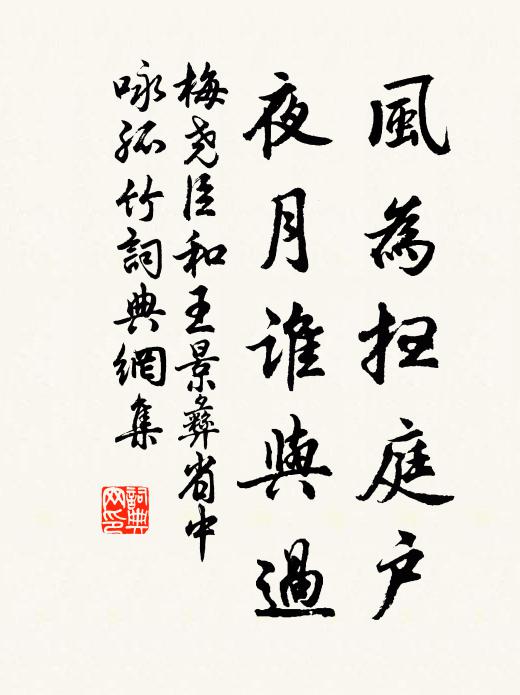 風為掃庭户
夜月誰與過
梅堯臣和王景彝省中
咏孤竹詞典網集
詞典网印